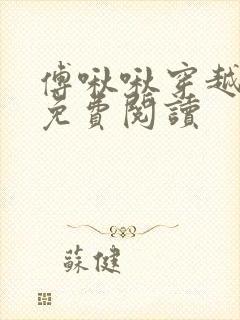 傅啾啾穿越
免費閱讀
蘇健